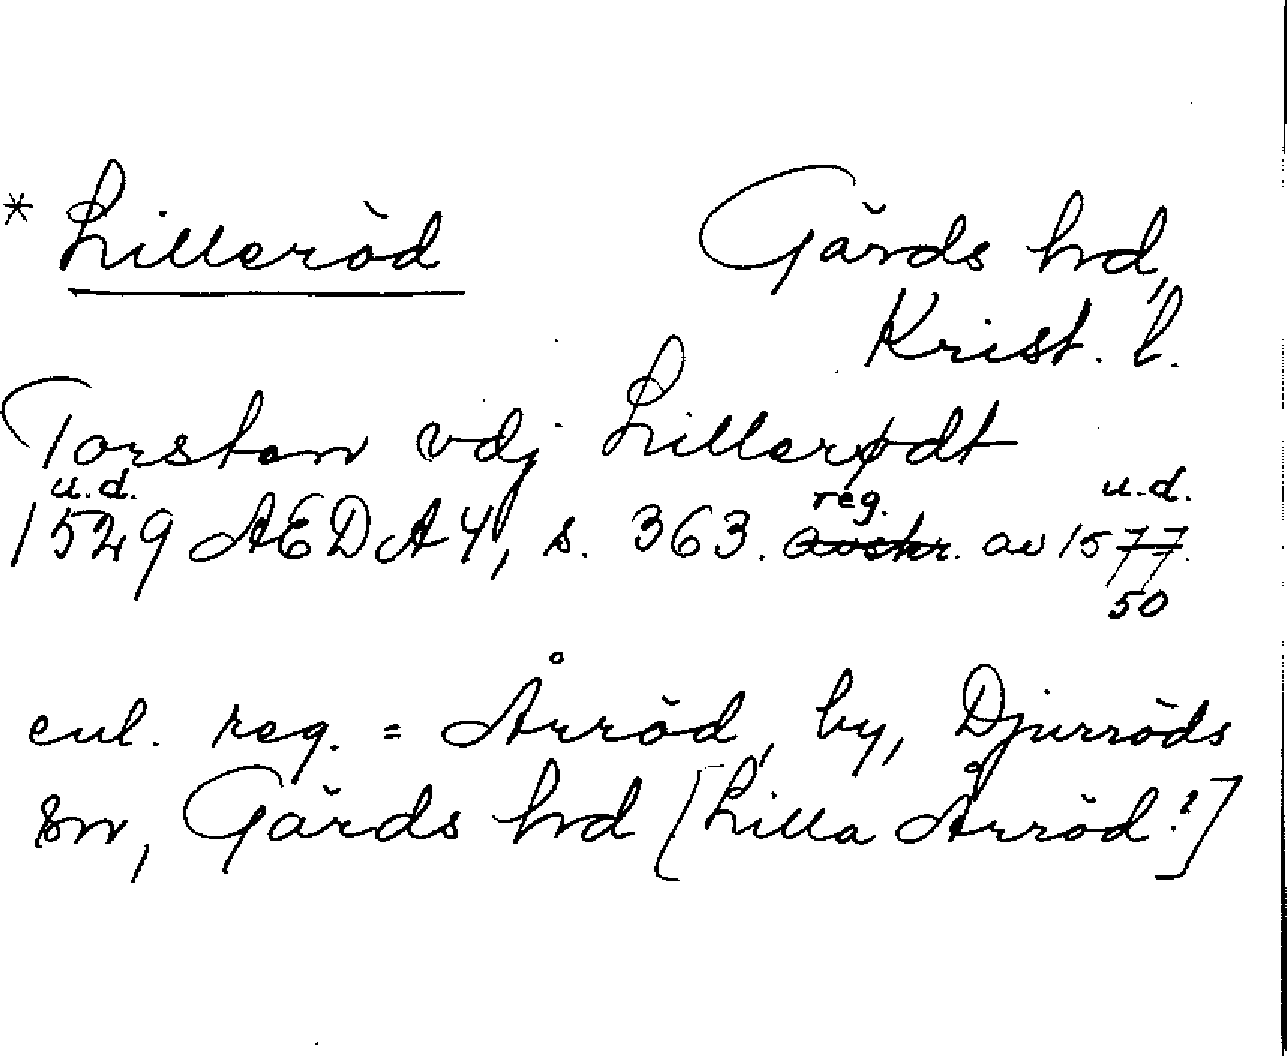 * Lilleröd Gärds hrd,
Krist. l.
Torsten vdj Lillerødt
u.d. reg. u.d.
1529 AEDA 4, s. 363. avskr. av 1577.
50
enl. reg. = Årröd, by, Djurröds
sn, Gärds hrd [Lilla Årröd?]